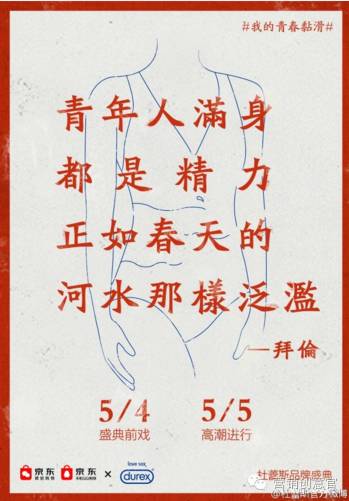 #我的青春黏滑#
青年人滿身
都是精力
正如春天的
河水那樣泛濫
—拜倫
5/4
盛典前戏
5/5
高潮进行
京东
京东
×
love sex
durex
杜蕾斯品牌盛典
@杜蕾斯官方微博